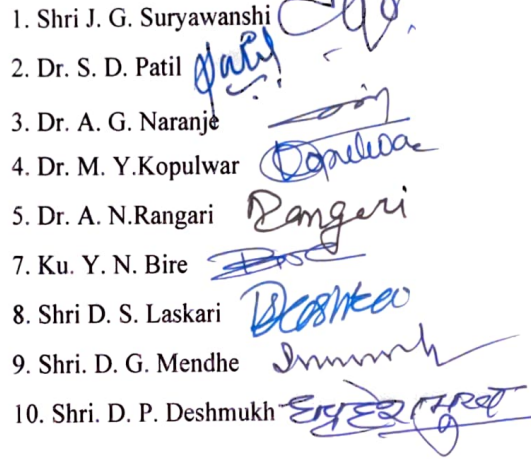 1. Shri J. G. Suryawanshi
2. Dr. S. D. Patil Patil
3. Dr. A. G. Naranje
4. Dr. M. Y.Kopulwar Kopulwar
5. Dr. A. N.Rangari Rangari
7. Ku. Y. N. Bire
8. Shri D. S. Laskari
9. Shri. D. G. Mendhe
10. Shri. D. P. Deshmukh